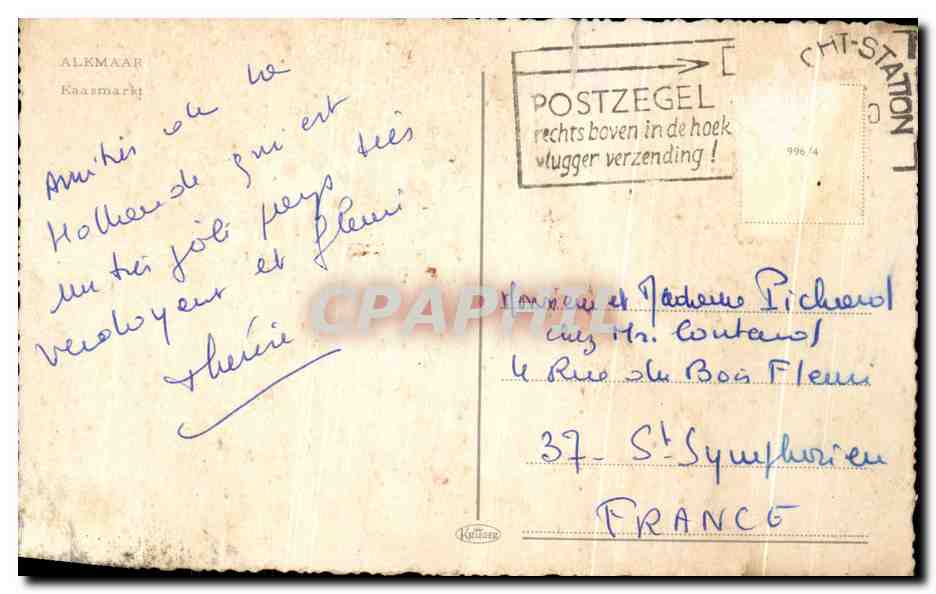 ALKMAAR
Kaasmarkt
Amitiés de la
Hollande qui est
un très joli pays très
verdoyant et fleuri
Thérèse
POSTZEGEL
rechts boven in de hoek
vlugger verzending!
CHT-STATION
996/4
CPAPHIL
Monsieur et Madame Pichard
chez Mr. Coutard
4 Rue du Bois Fleuri
37- St Symphorien
FRANCE
KRUGER